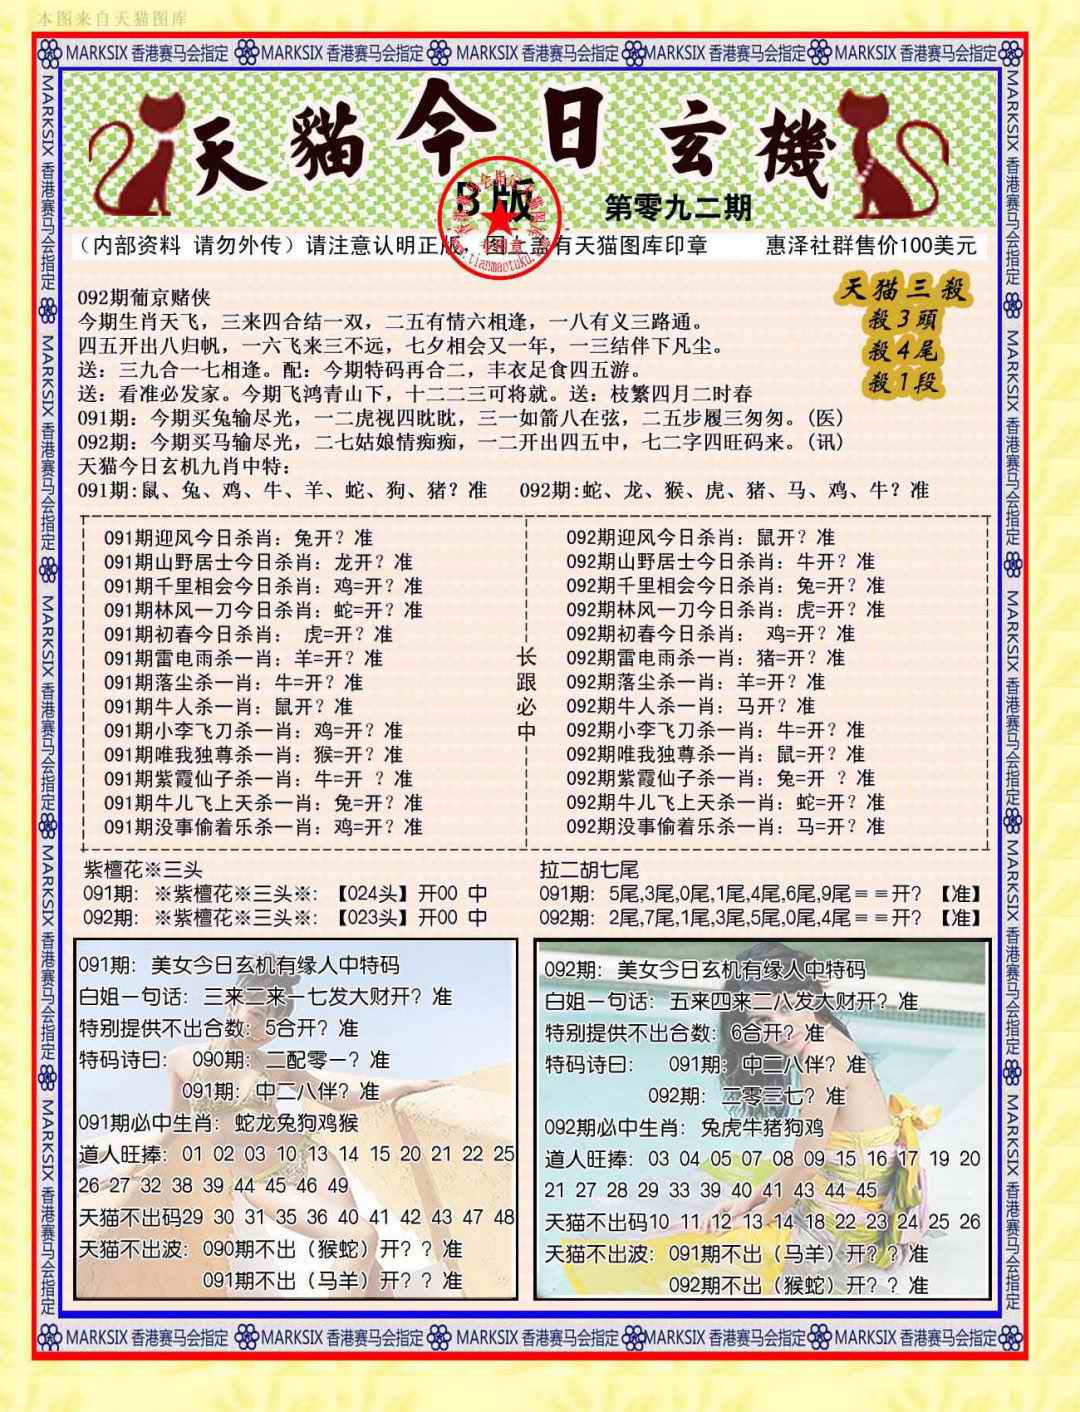 本图来自天猫图库
MARKSIX 香港赛马会指定 MARKSIX 香港赛马会指定 MARKSIX 香港赛马会指定 MARKSIX 香港赛马会指定 MARKSIX 香港赛马会指定
天貓今日玄機
B版
第零九二期
（内部资料 请勿外传）请注意认明正版，图上盖有天猫图库印章 惠泽社群售价100美元
092期葡京赌侠
今期生肖天飞，三来四合结一双，二五有情六相逢，一八有义三路通。
四五开出八归帆，一六飞来三不远，七夕相会又一年，一三结伴下凡尘。
送：三九合一七相逢。配：今期特码再合二，丰衣足食四五游。
送：看准必发家。今期飞鸿青山下，十二二三可将就。送：枝繁四月二时春
091期：今期买兔输尽光，一二虎视四眈眈，三一如箭八在弦，二五步履三匆匆。(医)
092期：今期买马输尽光，二七姑娘情痴痴，一二开出四五中，七二字四旺码来。(讯)
天猫今日玄机九肖中特：
091期:鼠、兔、鸡、牛、羊、蛇、狗、猪？准 092期:蛇、龙、猴、虎、猪、马、鸡、牛？准
天猫三殺
殺3頭
殺4尾
殺1段
091期迎风今日杀肖：兔开？准
091期山野居士今日杀肖：龙开？准
091期千里相会今日杀肖：鸡=开？准
091期林风一刀今日杀肖：蛇=开？准
091期初春今日杀肖： 虎=开？准
091期雷电雨杀一肖：羊=开？准
091期落尘杀一肖：牛=开？准
091期牛人杀一肖：鼠开？准
091期小李飞刀杀一肖：鸡=开？准
091期唯我独尊杀一肖：猴=开？准
091期紫霞仙子杀一肖：牛=开 ？准
091期牛儿飞上天杀一肖：兔=开？准
091期没事偷着乐杀一肖：鸡=开？准
长跟必中
092期迎风今日杀肖：鼠开？准
092期山野居士今日杀肖：牛开？准
092期千里相会今日杀肖：兔=开？准
092期林风一刀今日杀肖：虎=开？准
092期初春今日杀肖： 鸡=开？准
092期雷电雨杀一肖：猪=开？准
092期落尘杀一肖：羊=开？准
092期牛人杀一肖：马开？准
092期小李飞刀杀一肖：牛=开？准
092期唯我独尊杀一肖：鼠=开？准
092期紫霞仙子杀一肖：兔=开 ？准
092期牛儿飞上天杀一肖：蛇=开？准
092期没事偷着乐杀一肖：马=开？准
紫檀花※三头
091期：※紫檀花※三头※:【024头】开00 中
092期：※紫檀花※三头※:【023头】开00 中
拉二胡七尾
091期：5尾,3尾,0尾,1尾,4尾,6尾,9尾＝＝开？【准】
092期：2尾,7尾,1尾,3尾,5尾,0尾,4尾＝＝开？【准】
091期：美女今日玄机有缘人中特码
白姐一句话：三来二来一七发大财开？准
特别提供不出合数：5合开？准
特码诗曰： 090期：二配零一？准
091期：中二八伴？准
091期必中生肖：蛇龙兔狗鸡猴
道人旺捧：01 02 03 10 13 14 15 20 21 22 25
26 27 32 38 39 44 45 46 49
天猫不出码29 30 31 35 36 40 41 42 43 47 48
天猫不出波：090期不出（猴蛇）开？？准
091期不出（马羊）开？？准
092期：美女今日玄机有缘人中特码
白姐一句话：五来四来二八发大财开？准
特别提供不出合数：6合开？准
特码诗曰： 091期：中二八伴？准
092期：二零三七？准
092期必中生肖：兔虎牛猪狗鸡
道人旺捧：03 04 05 07 08 09 15 16 17 19 20
21 27 28 29 33 39 40 41 43 44 45
天猫不出码10 11 12 13 14 18 22 23 24 25 26
天猫不出波：091期不出（马羊）开？？准
092期不出（猴蛇）开？？准
MARKSIX 香港赛马会指定 MARKSIX 香港赛马会指定 MARKSIX 香港赛马会指定 MARKSIX 香港赛马会指定 MARKSIX 香港赛马会指定
MARKSIX 香港赛马会指定 MARKSIX 香港赛马会指定 MARKSIX 香港赛马会指定 MARKSIX 香港赛马会指定 MARKSIX 香港赛马会指定
MARKSIX 香港赛马会指定 MARKSIX 香港赛马会指定 MARKSIX 香港赛马会指定 MARKSIX 香港赛马会指定 MARKSIX 香港赛马会指定